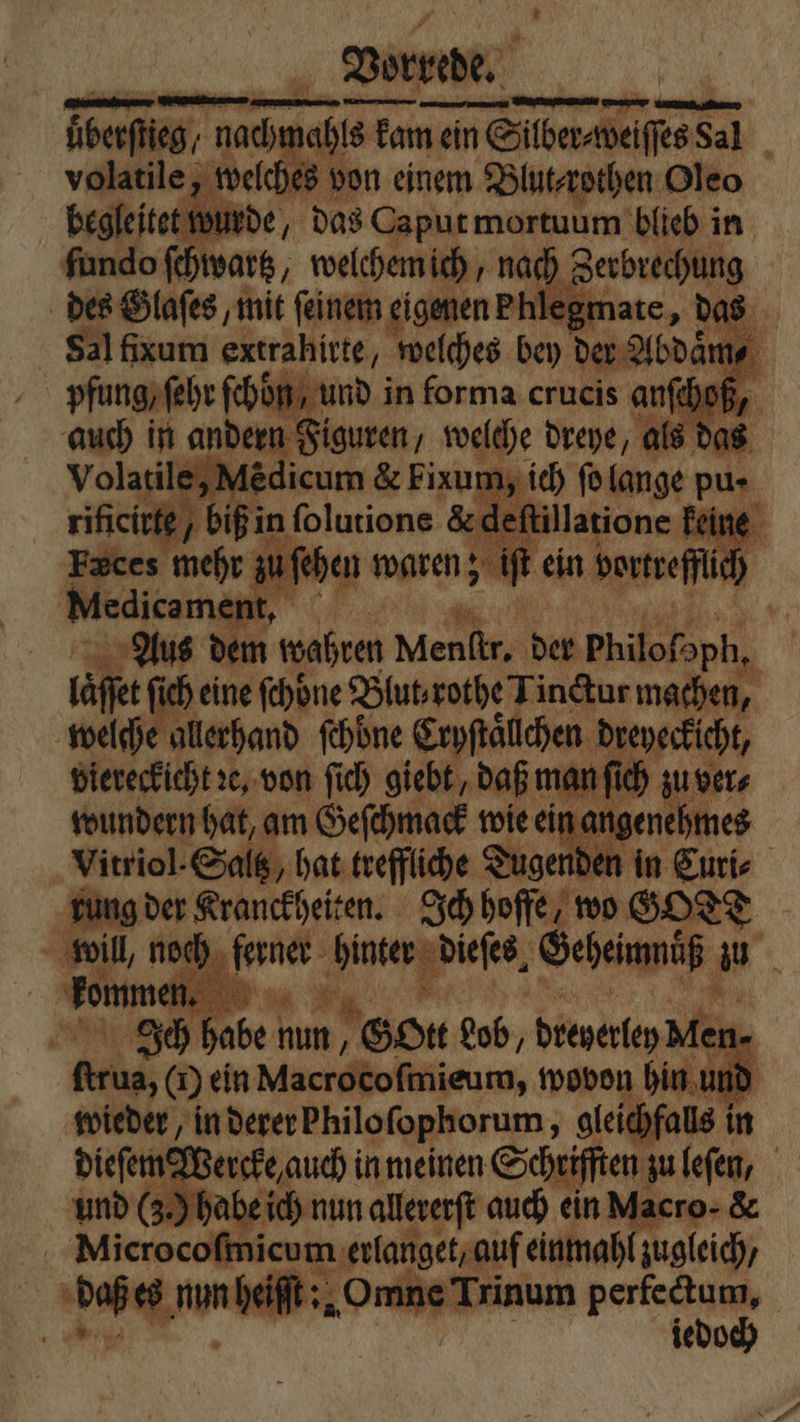 Vorrede.
uͤberſtieg, nachmahls kam ein Silber-weiſſes Sal
volatile, welches von einem Blut-rothen Oleo
begleitet wurde, das Caput mortuum blieb in
fundo ſchwartz, welchem ich, nach Zerbrechung
des Glaſes, mit ſeinem eigenen Phlegmate, das
Sal fixum extrahirte, welches bey der Abdaͤm-
pfung, ſehr ſchoͤn, und in forma crucis anſchoß,
auch in andern Figuren, welche dreye, als das
Volatile, Mêdicum & Fixum, ich ſo lange pu-
rificirte, biß in ſolutione & deſtillatione keine
Fæces mehr zu ſehen waren; iſt ein vortrefflich
Medicament.
Aus dem wahren Menſtr. der Philoſoph.
laͤſſet ſich eine ſchoͤne Blut-rothe Tinctur machen,
welche allerhand ſchoͤne Cryſtaͤllchen dreyeckicht,
viereckicht ꝛc, von ſich giebt, daß man ſich zu ver-
wundern hat, am Geſchmack wie ein angenehmes
Vitriol-Saltz, hat treffliche Tugenden in Curi-
rung der Kranckheiten. Ich hoffe, wo GOTT
will, noch ferner hinter dieſes Geheimnuͤß zu
kommen.
Ich habe nun, GOtt Lob, dreyerley Men-
ſtrua, (1) ein Macrocoſmicum, wovon hin und
wieder, in derer Philoſophorum, gleichfalls in
dieſem Wercke, auch in meinen Schrifften zu leſen,
und (3.) habe ich nun allererſt auch ein Macro- &
Microcoſmicum erlanget, auf einmahl zugleich,
daß es nun heiſſt: Omne Trinum perfectum,
iedoch